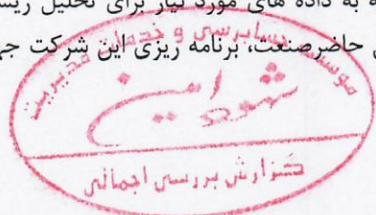 به داده های مورد نیاز برای تحلیل ریس
حاضرصنعت، برنامه ریزی این شرکت جه
موسسه حسابرسی و خدمات مدیریت
شهود امین
گزارش بررسی اجمالی